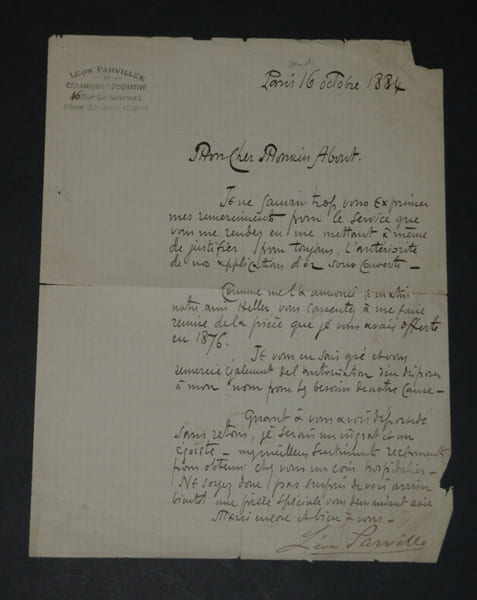 LÉON PARVILLÉE
CÉRAMIQUE DÉCORATIVE
jeudi
Paris 16 octobre 1884
Mon Cher Monsieur About.
Je ne saurais trop vous exprimer
mes remerciements pour le service que
vous me rendez en me mettant à même
de justifier pour toujours, l'antériorité
de nos applications d'or sous couverte –
Comme me l'a annoncé ce matin
notre ami Heller vous consentez à me faire
remise de la pièce que je vous avais offerte
en 1876.
Je vous en sais gré et vous
remercie également de l'autorisation d'en disposer
à mon nom pour les besoins de notre cause –
Quant à vous avoir dépossédé
sans retour, je serais un ingrat et un
égoïste –
pour obtenir chez vous un coin hospitalier –
Ne soyez donc pas surpris de voir arriver
bientôt une pièce spéciale vous demandant asile
Merci encore et bien à vous –
Léon Parvillée